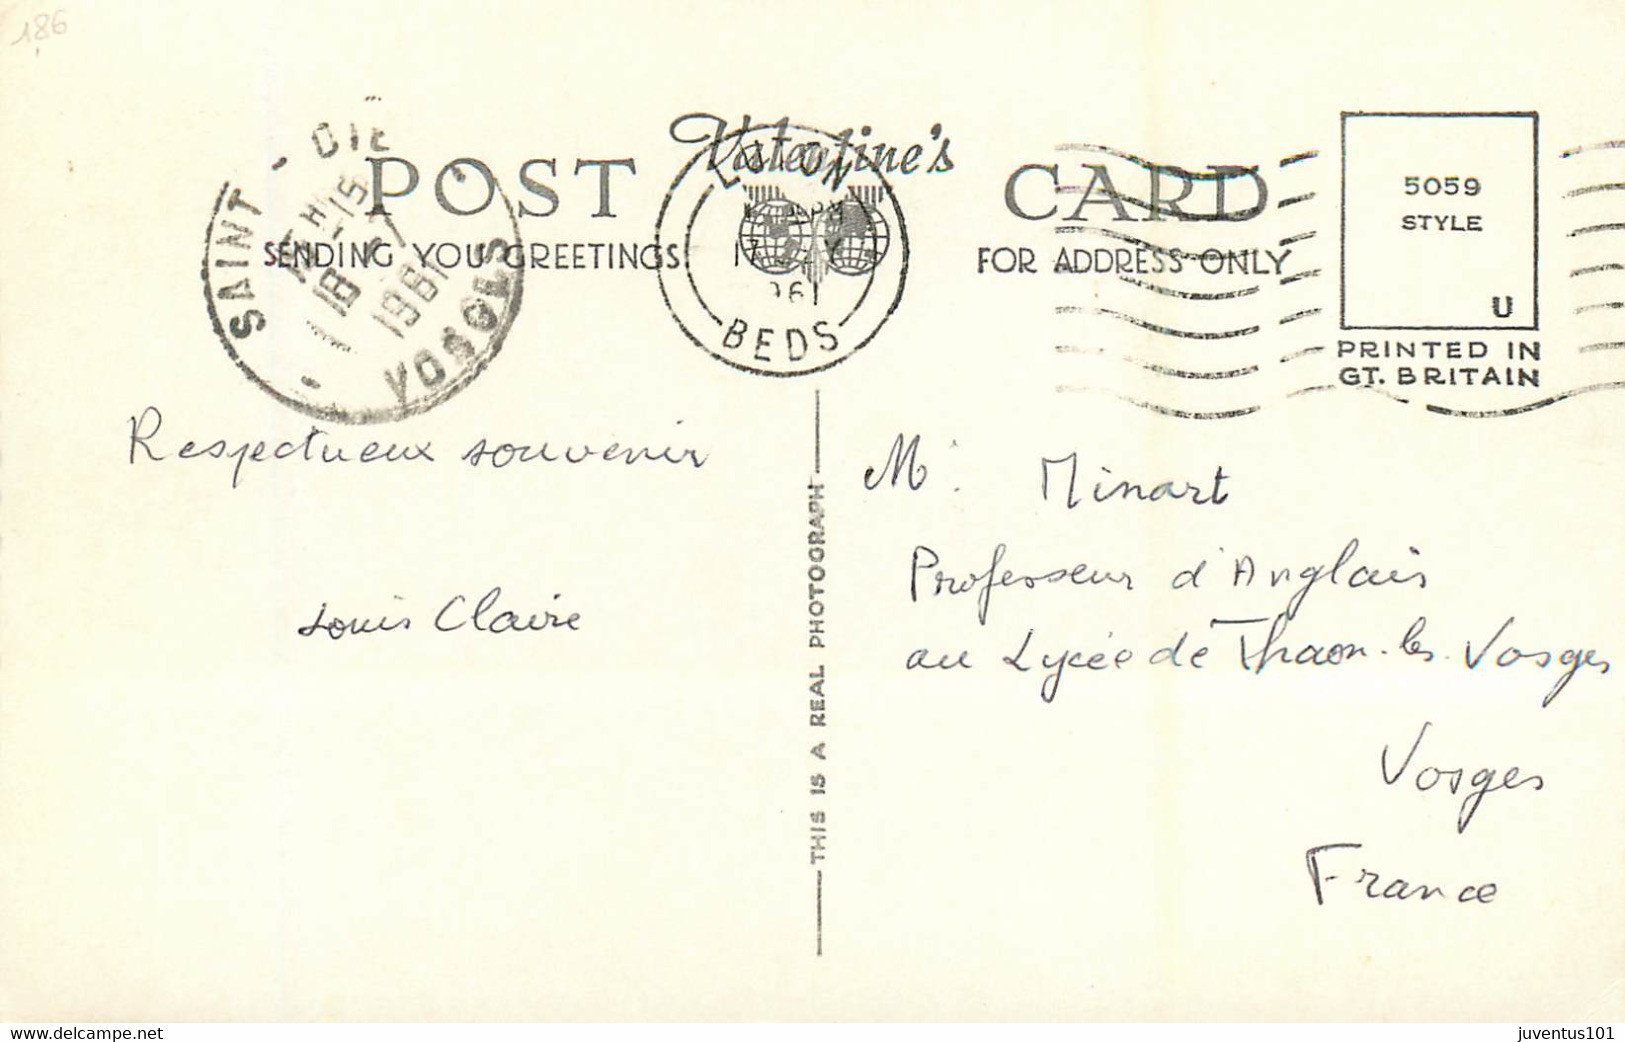 186
Valentine's
POST CARD
SENDING YOU GREETINGS
FOR ADDRESS ONLY
SAINT - DIE
15 H -15
18 - 7
1961
VOSGES
LUTON
PM
17
1961
BEDS
5059
STYLE
U
PRINTED IN
GT. BRITAIN
Respectueux souvenir
Louis Claire
THIS IS A REAL PHOTOGRAPH
Mr. Minart
Professeur d'Anglais
au Lycée de Thaon-les-Vosges
Vosges
France
www.delcampe.net
juventus101